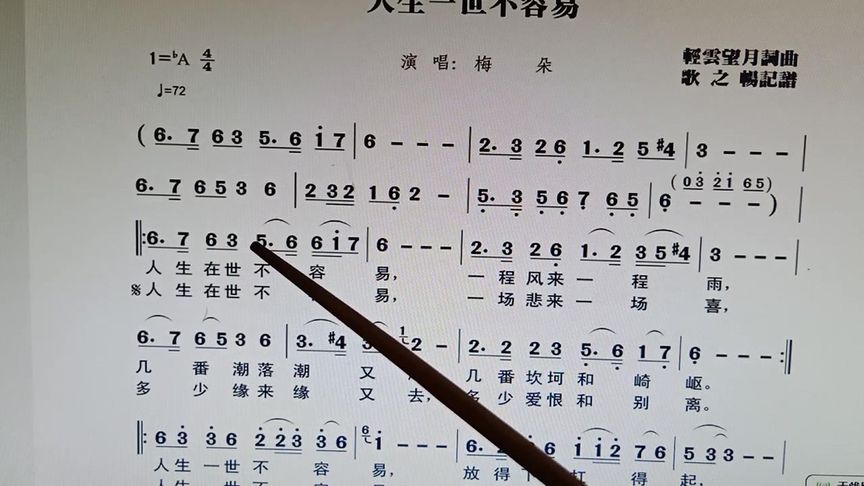 人生一世不容易
1=♭A 4/4
演 唱: 梅 朵
輕雲望月詞曲
歌 之 暢記譜
♩=72
( 6. 7 6 3 5. 6 i 7 | 6 - - - | 2. 3 2 6 1. 2 5 #4 | 3 - - - |
6. 7 6 5 3 6 | 2 3 2 1 6 2 - | 5. 3 5 6 7 6 5 | 6 - - - )
( 0 3 2 1 6 5 )
‖: 6. 7 6 3 5. 6 6 i 7 | 6 - - - | 2. 3 2 6 1. 2 3 5 #4 | 3 - - - |
人 生 在 世 不 容 易, 一 程 风 来 一 程 雨,
𝄋 人 生 在 世 不 易, 一 场 悲 来 一 场 喜,
6. 7 6 5 3 6 | 3. #4 2 - | 2. 2 2 3 5. 6 1 7 | 6 - - - :‖
几 番 潮 落 潮 又 几 番 坎 坷 和 崎 岖。
多 少 缘 来 缘 又 去, 少 爱 恨 和 别 离。
‖: 6 3 3 6 2 2 3 3 6 | i - - - | 6. 6 i i 2 7 6 | 5 3 3 - - |
人 生 一 世 不 容 易, 放 得 打 得 起,
人 生 一 世 不 容 易,